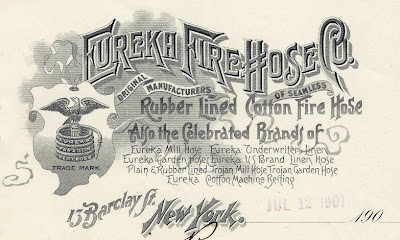 EUREKA FIRE HOSE CO.
ORIGINAL MANUFACTURERS OF SEAMLESS
Rubber Lined Cotton Fire Hose
Also the Celebrated Brands of
Eureka Mill Hose Eureka Underwriters Linen
Eureka Garden Hose Eureka U.S Brand Linen Hose
Plain & Rubber Lined Trojan Mill Hose Trojan Garden Hose
Eureka Cotton Machine Belting
TRADE MARK
13 Barclay St.
New York.
JUL 12 1901
190